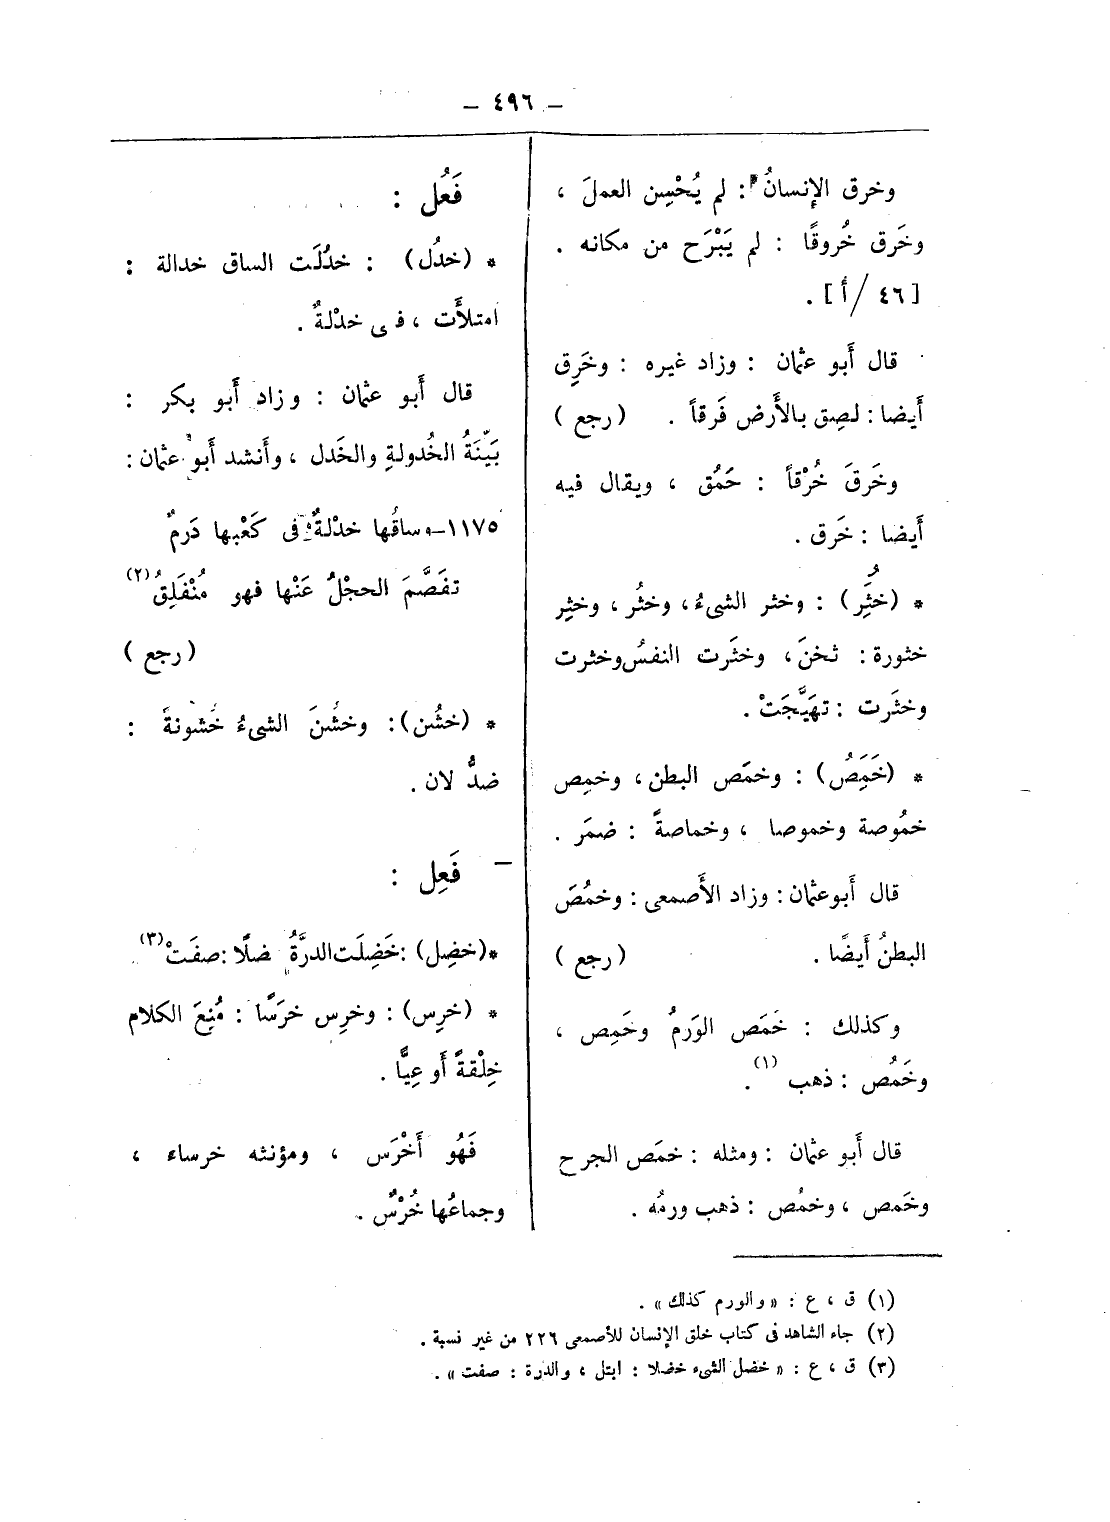 – ٤٩٦ –
وخرق الإنسانُ : لم يُحْسِن العملَ ،
وخَرق خُروقًا : لم يَبْرَح من مكانه .
[٤٦ /أ] .
قال أَبو عثمان : وزاد غيره : وخَرِق
أَيضا : لصِق بالأَرض فَرقاً . ( رجع )
وخَرَقَ خُرْقاً : حَمُق ، ويقال فيه
أَيضا : خَرق .
* (خثَُِر) : وخثر الشىءُ، وخثُر ، وخثِر
خثورة : ثخنَ ، وخثَرت النفسُ وخثرت
وخثَرت : تهَيَّجَتْ .
* (خَمَُِصَ) : وخمَص البطن ، وخمِص
خمُوصة وخموصا ، وخماصةً : ضمَر .
قال أَبو عثمان : وزاد الأَصمعى : وخمُصَ
البطنُ أَيضًا . ( رجع )
وكذلك : خَمَص الوَرمُ وخَمِص ،
وخَمُص : ذهب (١) .
قال أَبو عثمان : ومثله : خمَص الجرح
وخَمص ، وخمُص : ذهب ورمُه .
فَعُل :
* (خدُل) : خدُلَت الساق خدالة :
امتلأَت ، فهى خدْلةٌ .
قال أَبو عثمان : وزاد أَبو بكر :
بَيِّنَةُ الخُدولةِ والخَدل ، وأَنشد أَبو عثمان :
١١٧٥– وساقُها خدْلةٌ فى كَعْبها دَرمٌ
تفَصَّمَ الحجْلُ عَنْها فهو مُنْفَلِقُ (٢)
( رجع )
* (خشُن) : وخشُنَ الشىءُ خُشونةً :
ضدُّ لان .
– فَعِل :
* (خضِل) : خَضِلَت الدرَّةُ ضلًا : صفَتْ (٣) .
* (خرِس) : وخرِس خرَسًا : مُنِعَ الكلام
خِلْقةً أَو عِيًّا .
فَهُو أَخْرَس ، ومؤنثه خرساء ،
وجماعُها خُرْسٌ .
(١) ق ، ع : « والورم كذلك » .
(٢) جاء الشاهد فى كتاب خلق الإنسان للأصمعى ٢٢٦ من غير نسبة .
(٣) ق ، ع : « خضل الشىء خضلا : ابتل ، والدرة : صفت » .